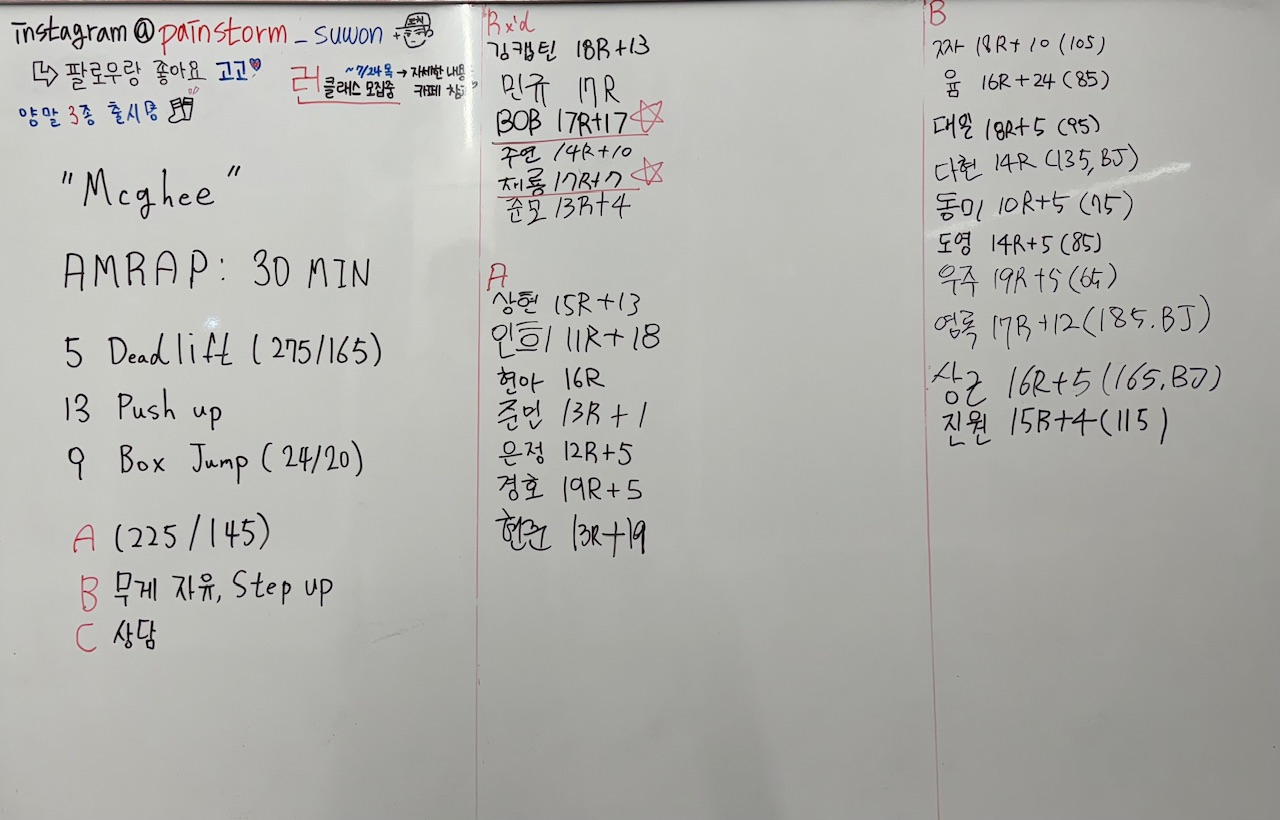 instagram@painstorm_suwon
팔로우랑 좋아요 고고
양말 3종 출시
~7/24 목 → 자세한 내용
러 클래스 모집중 카페 참고
"Mcghee"
AMRAP: 30 MIN
5 Deadlift (275/165)
13 Push up
9 Box Jump (24/20)
A (225/145)
B 무게 자유, Step up
C 상담
Rx'd
김캡틴 18R+13
민규 17R
BOB 17R+17
주연 14R+10
재룡 17R+7
준모 13R+4
A
상현 15R+13
인트1 11R+18
현아 16R
준민 13R+1
은정 12R+5
경호 19R+5
현준 13R+19
B
18R+10 (105)
윰 16R+24 (85)
대일 18R+5 (95)
다현 14R (135, BJ)
동미 10R+5 (75)
도영 14R+5 (85)
우주 19R+5 (65)
영록 17R+12 (185. BJ)
상근 16R+5 (165. BJ)
진원 15R+4 (115)